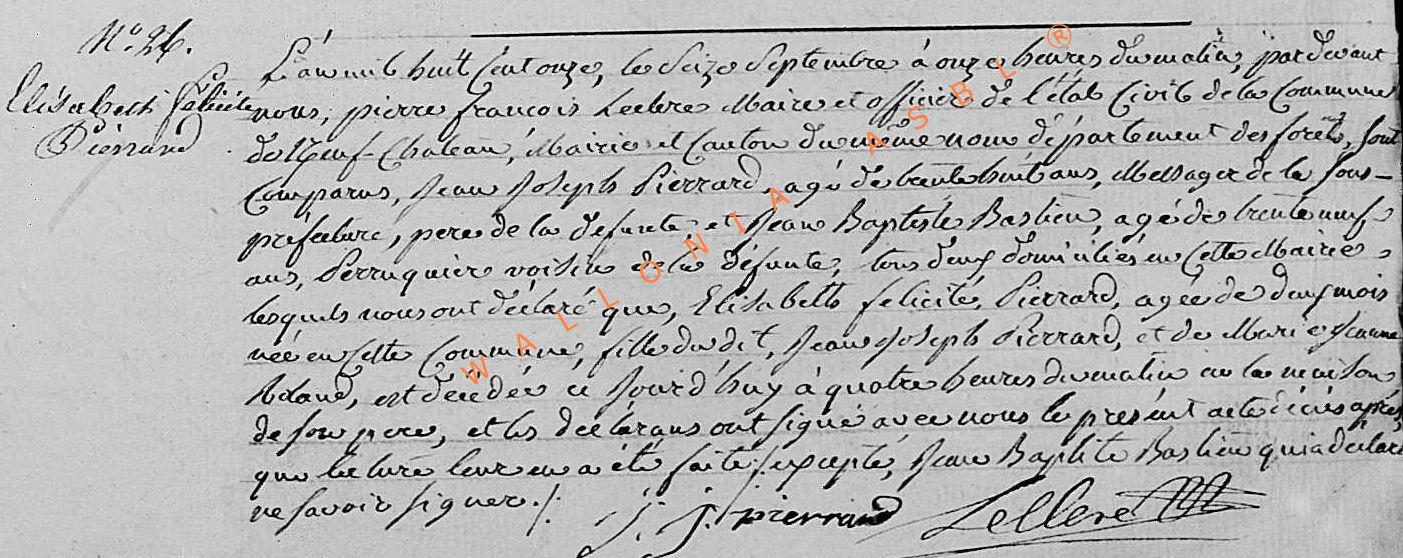 N.º 26.
Elisabeth Félicité
Pierrard
L'an mil huit Cent onze, le Seize Septembre à onze heures du matin, par devant
nous, pierre françois Leclere Maire et officier de l'état Civil de la Commune
de Neuf-Chateau, Mairie et Canton du même nom département des forêts, sont
Comparus, Jean Joseph Pierrard, agé de trente huit ans, Messager de la sous-
préfecture, pere de la defunte, et Jean Baptiste Bastien, agé de trente neuf
ans, Perruquier voisin de la défunte, tous deux domiciliés en Cette Mairie,
lesquels nous ont déclaré que, Elisabeth felicité, Pierrard, agée de deux mois
née en Cette Commune, fille du dit, Jean Joseph Pierrard, et de Marie Jeanne
est décédée ce Jourd'huy à quatre heures du matin en la maison
de son pere, et les déclarans ont signé avec nous le présent acte décès après
que lecture leur en a été faite, excepté, Jean Baptite Bastien qui a déclaré
ne savoir signer./.
J. J. pierrard Leclere
WALLONIA ASBL ®